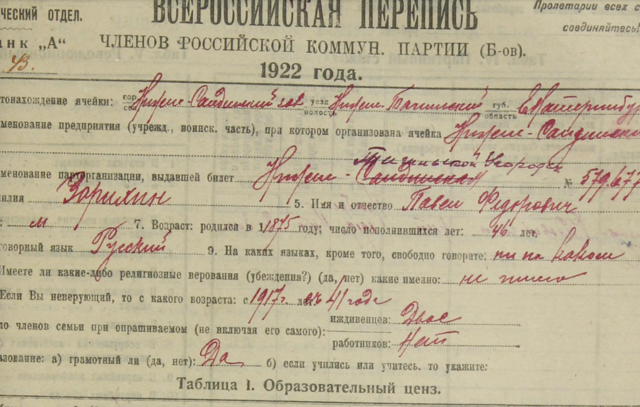 ИЧЕСКИЙ ОТДЕЛ.
ВСЕРОССИЙСКАЯ ПЕРЕПИСЬ
Пролетарии всех с
соединяйтесь!
АНК „А“
ЧЛЕНОВ РОССИЙСКОЙ КОММУН. ПАРТИИ (Б-ов).
1922 года.
тонахождение ячейки: уезд волость губ. область
именование предприятия (учрежд., воинск. часть), при котором организована ячейка
именование парторганизации, выдавшей билет №
милия Зорихин 5. Имя и отчество Павел Федорович
: м 7. Возраст: родился в 1875 году; число пополнившихся лет: 46 лет.
говорный язык Русский 9. На каких языках, кроме того, свободно говорите: ни на каком
Имеете ли какие-либо религиозные верования (убеждения?) (да, нет) какие именно: не имею
Если Вы неверующий, то с какого возраста: с 1917 г. 41 года
иждивенцев: Двое
ло членов семьи при опрашиваемом (не включая его самого):
работников: Нет
разование: а) грамотный ли (да, нет): Да б) если учились или учитесь, то укажите:
Таблица I. Образовательный ценз.